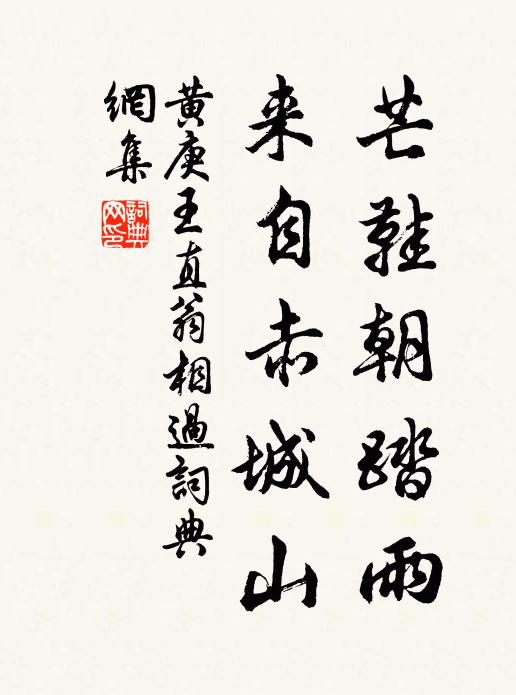 芒鞋朝踏雨
来自赤城山
黄庚王直翁相過詞典
網集
詞典
网印